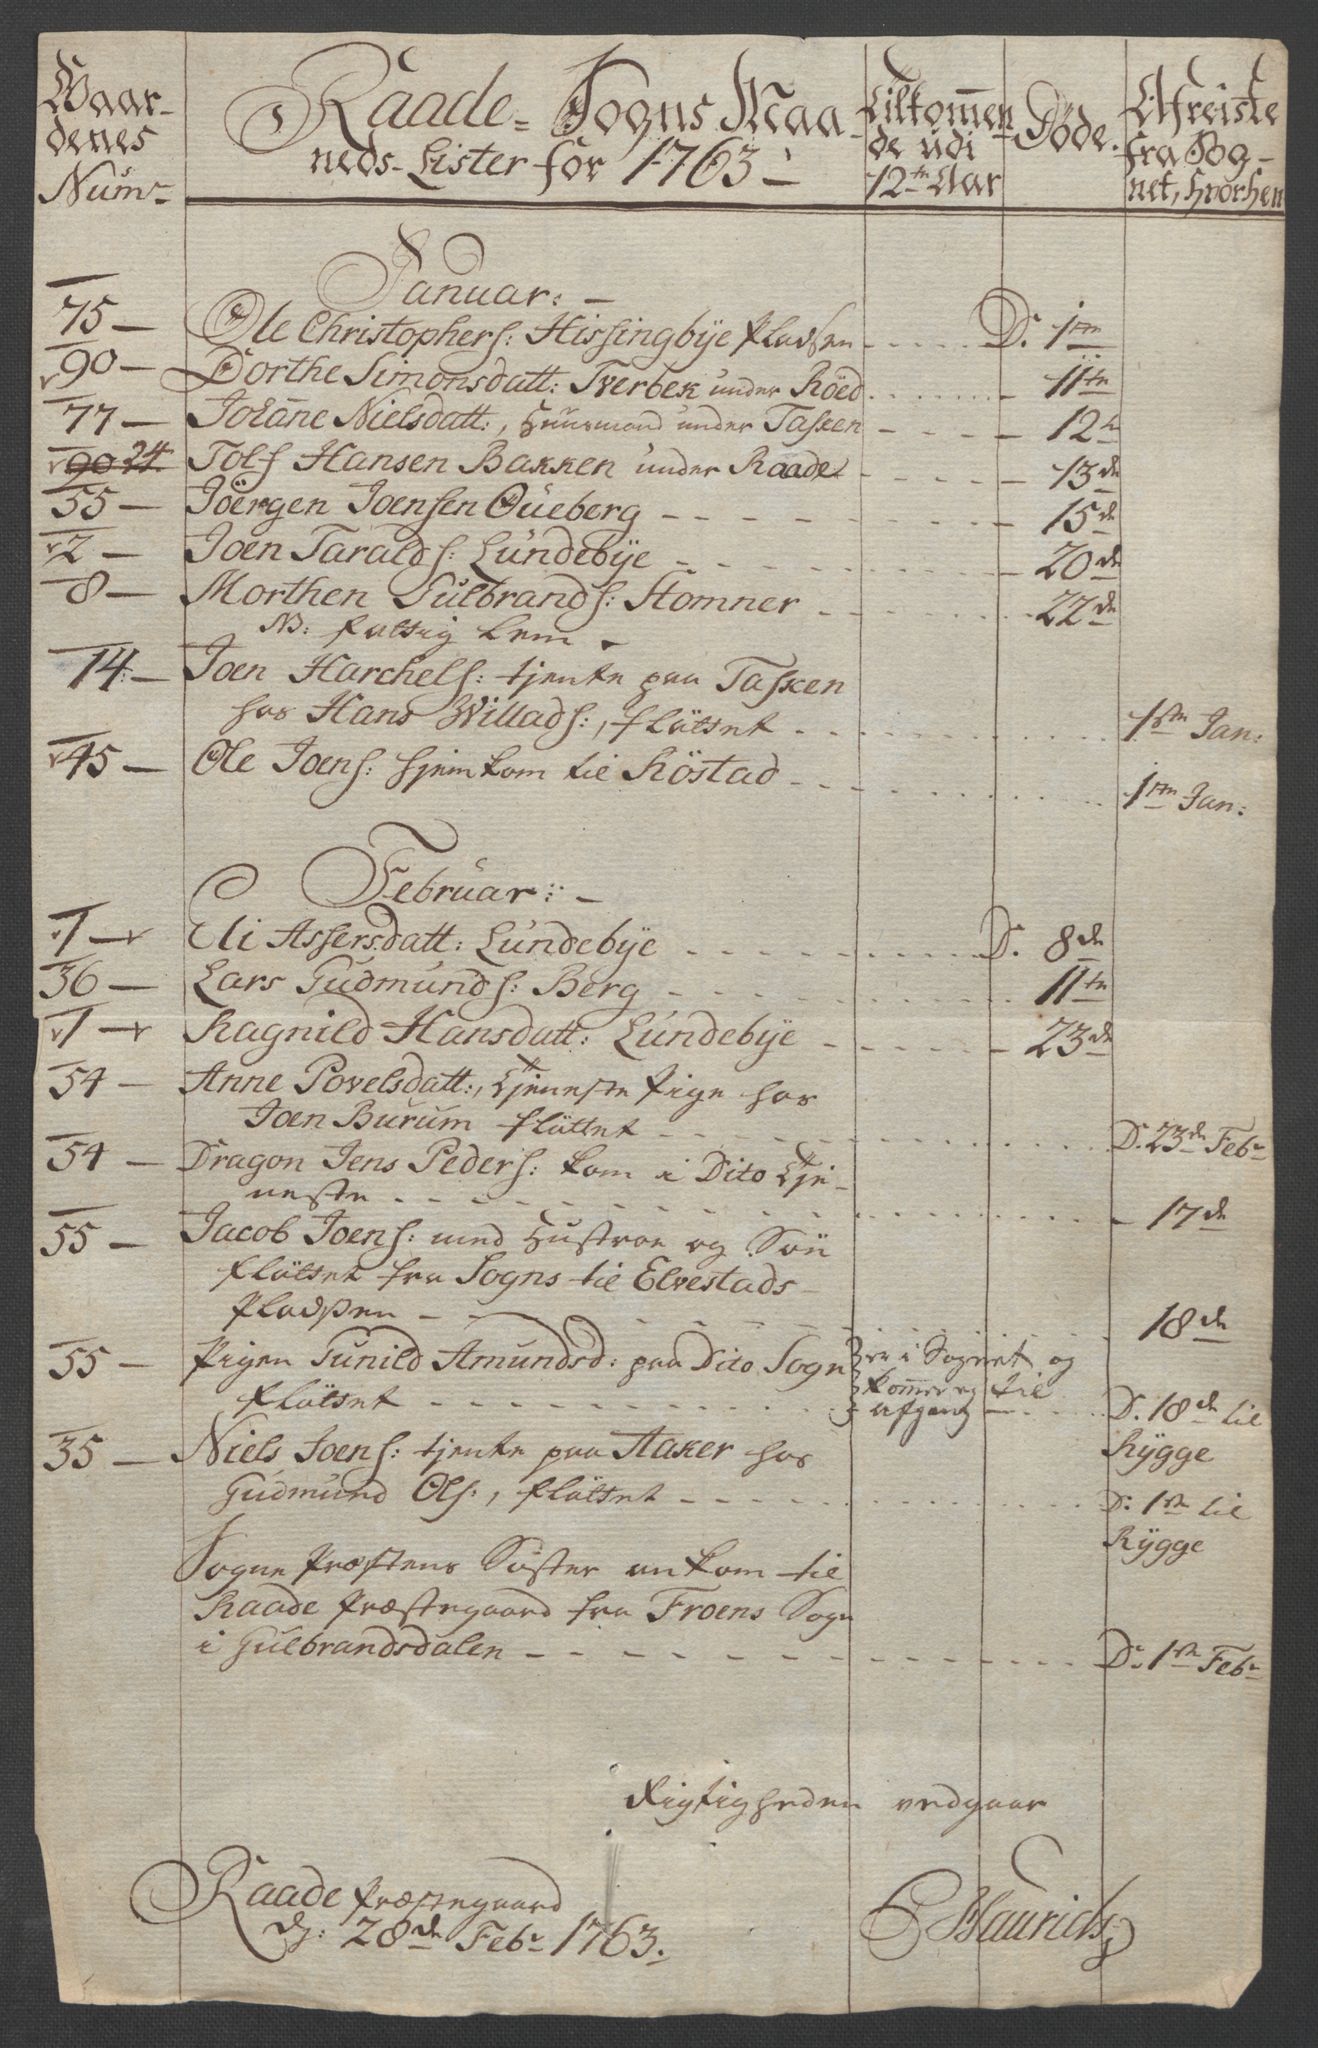 Gaar-
denes
Num:
Raade-Sogns Maa-
neds-Lister for 1763
Tilkommen-
de udi
12te Aar
Døde.
Afreiste
fra Sog-
net, hvorhen
Januar:
75 — Ole Christophers: Hissingbÿe Pladsen D. 1ste
90 — Dorthe Simonsdatt: Tverbek under Röed 11te
77 — Johane Nielsdatt:, Huusmand under Tasken — 12te
90 24. Tolf Hansen Bakken under Raade — 13de
55 — Joërgen Joensen Oueberg — 15de
2 — Joen Taralds: Lundebÿe — 20de
8 — Morthen Gulbrands: Stomner 22de
NB: fattig Lem
14 — Joen Harchels: tjente paa Tasken
hos Hans Willads:, flÿttet 1ste Jan:
45 — Ole Joens: hjemkom til Röstad 1ste Jan:
Februar:
1 — Eli Assersdatt: Lundebÿe D. 8de
36 — Lars Gudmunds: Berg 11te
1 — Ragnild Hansdatt: Lundebÿe — 23de
54 — Anne Povelsdatt:, tjeneste Pige hos
Joen Burum flÿttet D. 23de Feb:
54 — Dragon Jens Peders: kom i Dito Tje-
neste — 17de
55 — Jacob Joens: med Hustroe og Sön
flÿttet fra Sogns til Elvestads-
Pladsen 18de
55 — Pigen Gunild Amundsd: paa Dito Sogn er i Sognet og
flÿttet kommer eg til
afgang D. 18de til
Rÿgge
35 — Niels Joens: tjente paa Aaker hos
Gudmund Ols:, flÿttet D: 1ste til
Rÿgge
Sogne Præstens Söster ankom til
Raade Præstegaard fra Froens Sogn
i Gulbrandsdalen D: 1ste Feb:
Rigtigheden vedgaar
Raade Præstegaard
d: 28de Feb: 1763.